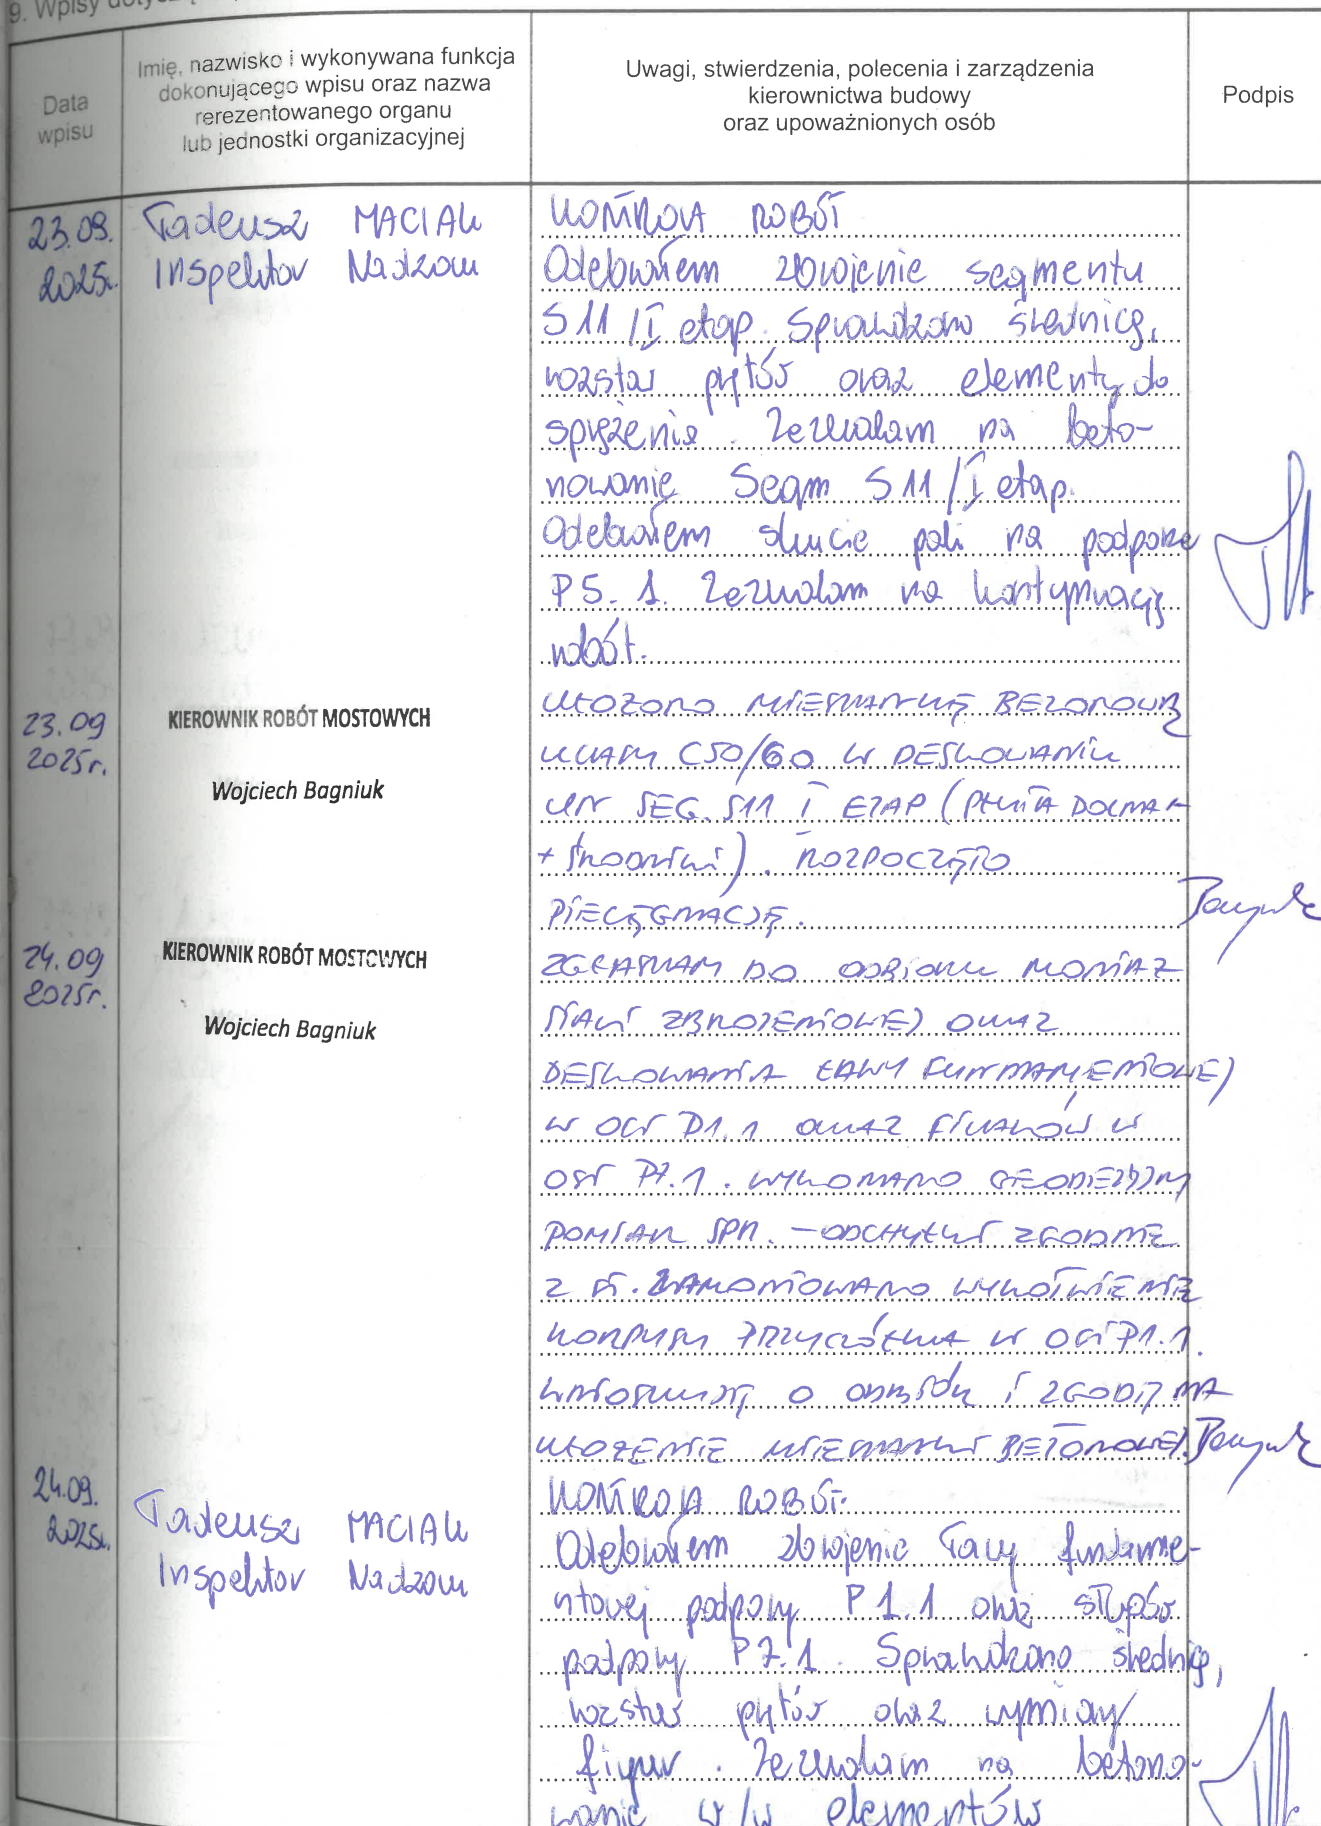 9. Wpisy
Data
wpisu
Imię, nazwisko i wykonywana funkcja
dokonującego wpisu oraz nazwa
rerezentowanego organu
lub jednostki organizacyjnej
Uwagi, stwierdzenia, polecenia i zarządzenia
kierownictwa budowy
oraz upoważnionych osób
Podpis
23.09.
2025r.
Tadeusz MACIAK
Inspektor Nadzoru
KONTROLA ROBÓT
Odebrałem zbrojenie segmentu
S11/I etap. Sprawdzono średnicę,
rozstaw prętów oraz elementy do
sprężenia. Zezwalam na beto-
nowanie Segm S11/I etap.
Odebrałem skucie pali na podporze
P5.1. Zezwalam na kontynuację
robót.
23.09
2025r.
KIEROWNIK ROBÓT MOSTOWYCH
Wojciech Bagniuk
UŁOŻONO MIESZANKĘ BETONOWĄ
KLASY C50/60 W DESKOWANIU
UN SEG. S11 I ETAP (PŁYTA DOLNA
+ ŚRODNIKI). ROZPOCZĘTO
PIELĘGNACJĘ.
24.09
2025r.
KIEROWNIK ROBÓT MOSTOWYCH
Wojciech Bagniuk
ZGŁASZAM DO ODBIORU MONTAŻ
STALI ZBROJENIOWEJ ORAZ
DESKOWANIA ŁAWY FUNDAMENTOWEJ
W OSI P1.1 ORAZ FILARÓW W
OSI P7.1. WYKONANO GEODEZYJNY
POMIAR SPR. - ODCHYŁKI ZGODNE
Z ST. ZAMONTOWANO WYKOTWIENIE
KORPUSU PRZYCZÓŁKA W OSI P1.1.
WNIOSKUJĘ O ODBIÓR I ZGODĘ NA
UŁOŻENIE MIESZANKI BETONOWEJ.
24.09.
2025r.
Tadeusz MACIAK
Inspektor Nadzoru
KONTROLA ROBÓT.
Odebrałem zbrojenie ławy fundame-
ntowej podpory P1.1 oraz słupów
podpory P7.1. Sprawdzono średnicę,
rozstaw prętów oraz wymiary
figur. Zezwalam na betono-
wanie w/w elementów